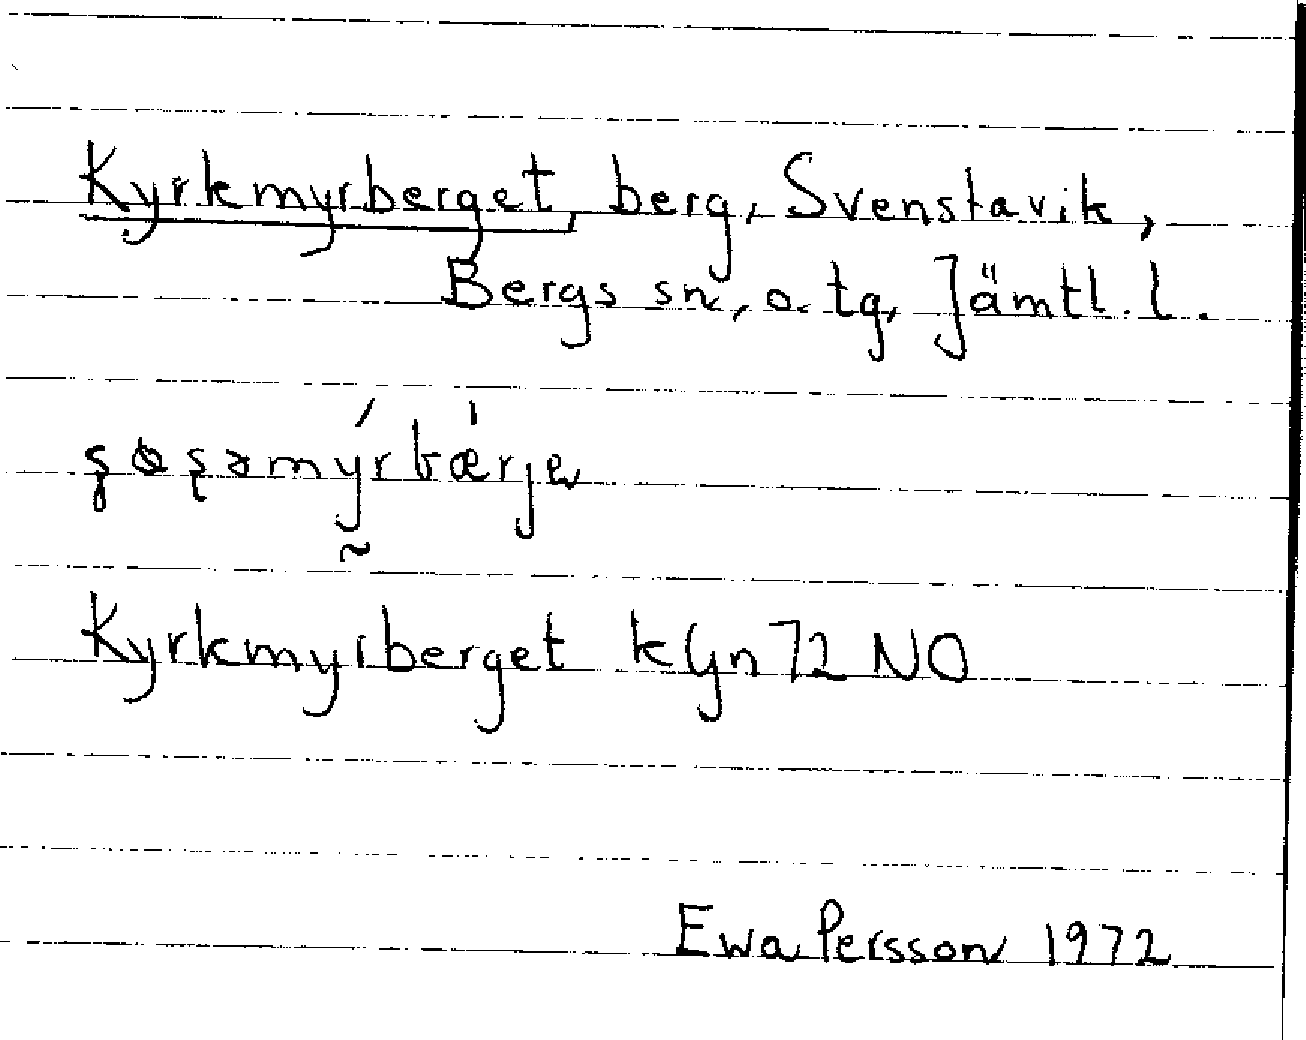 Kyrkmyrberget berg, Svenstavik,
Bergs sn, o. tg, Jämtl. l.
Kyrkmyrberget kGn 72 NO
Ewa Persson 1972